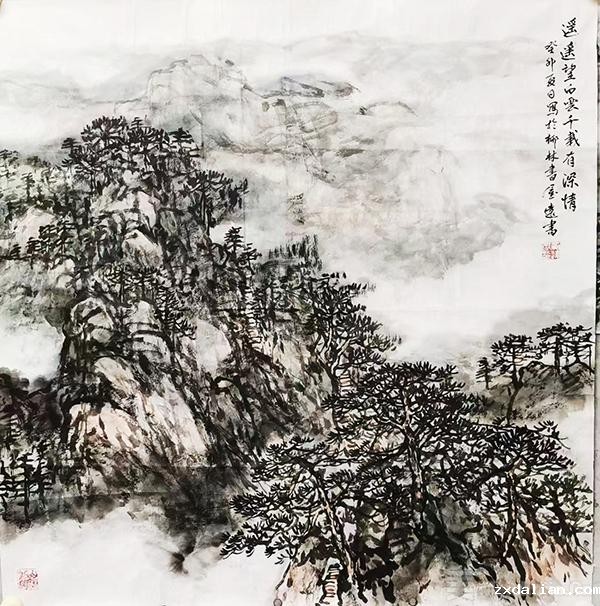 遥遥望白雲千载有深情
癸卯夏日写於柳林書屋遠書
zxdalian.com